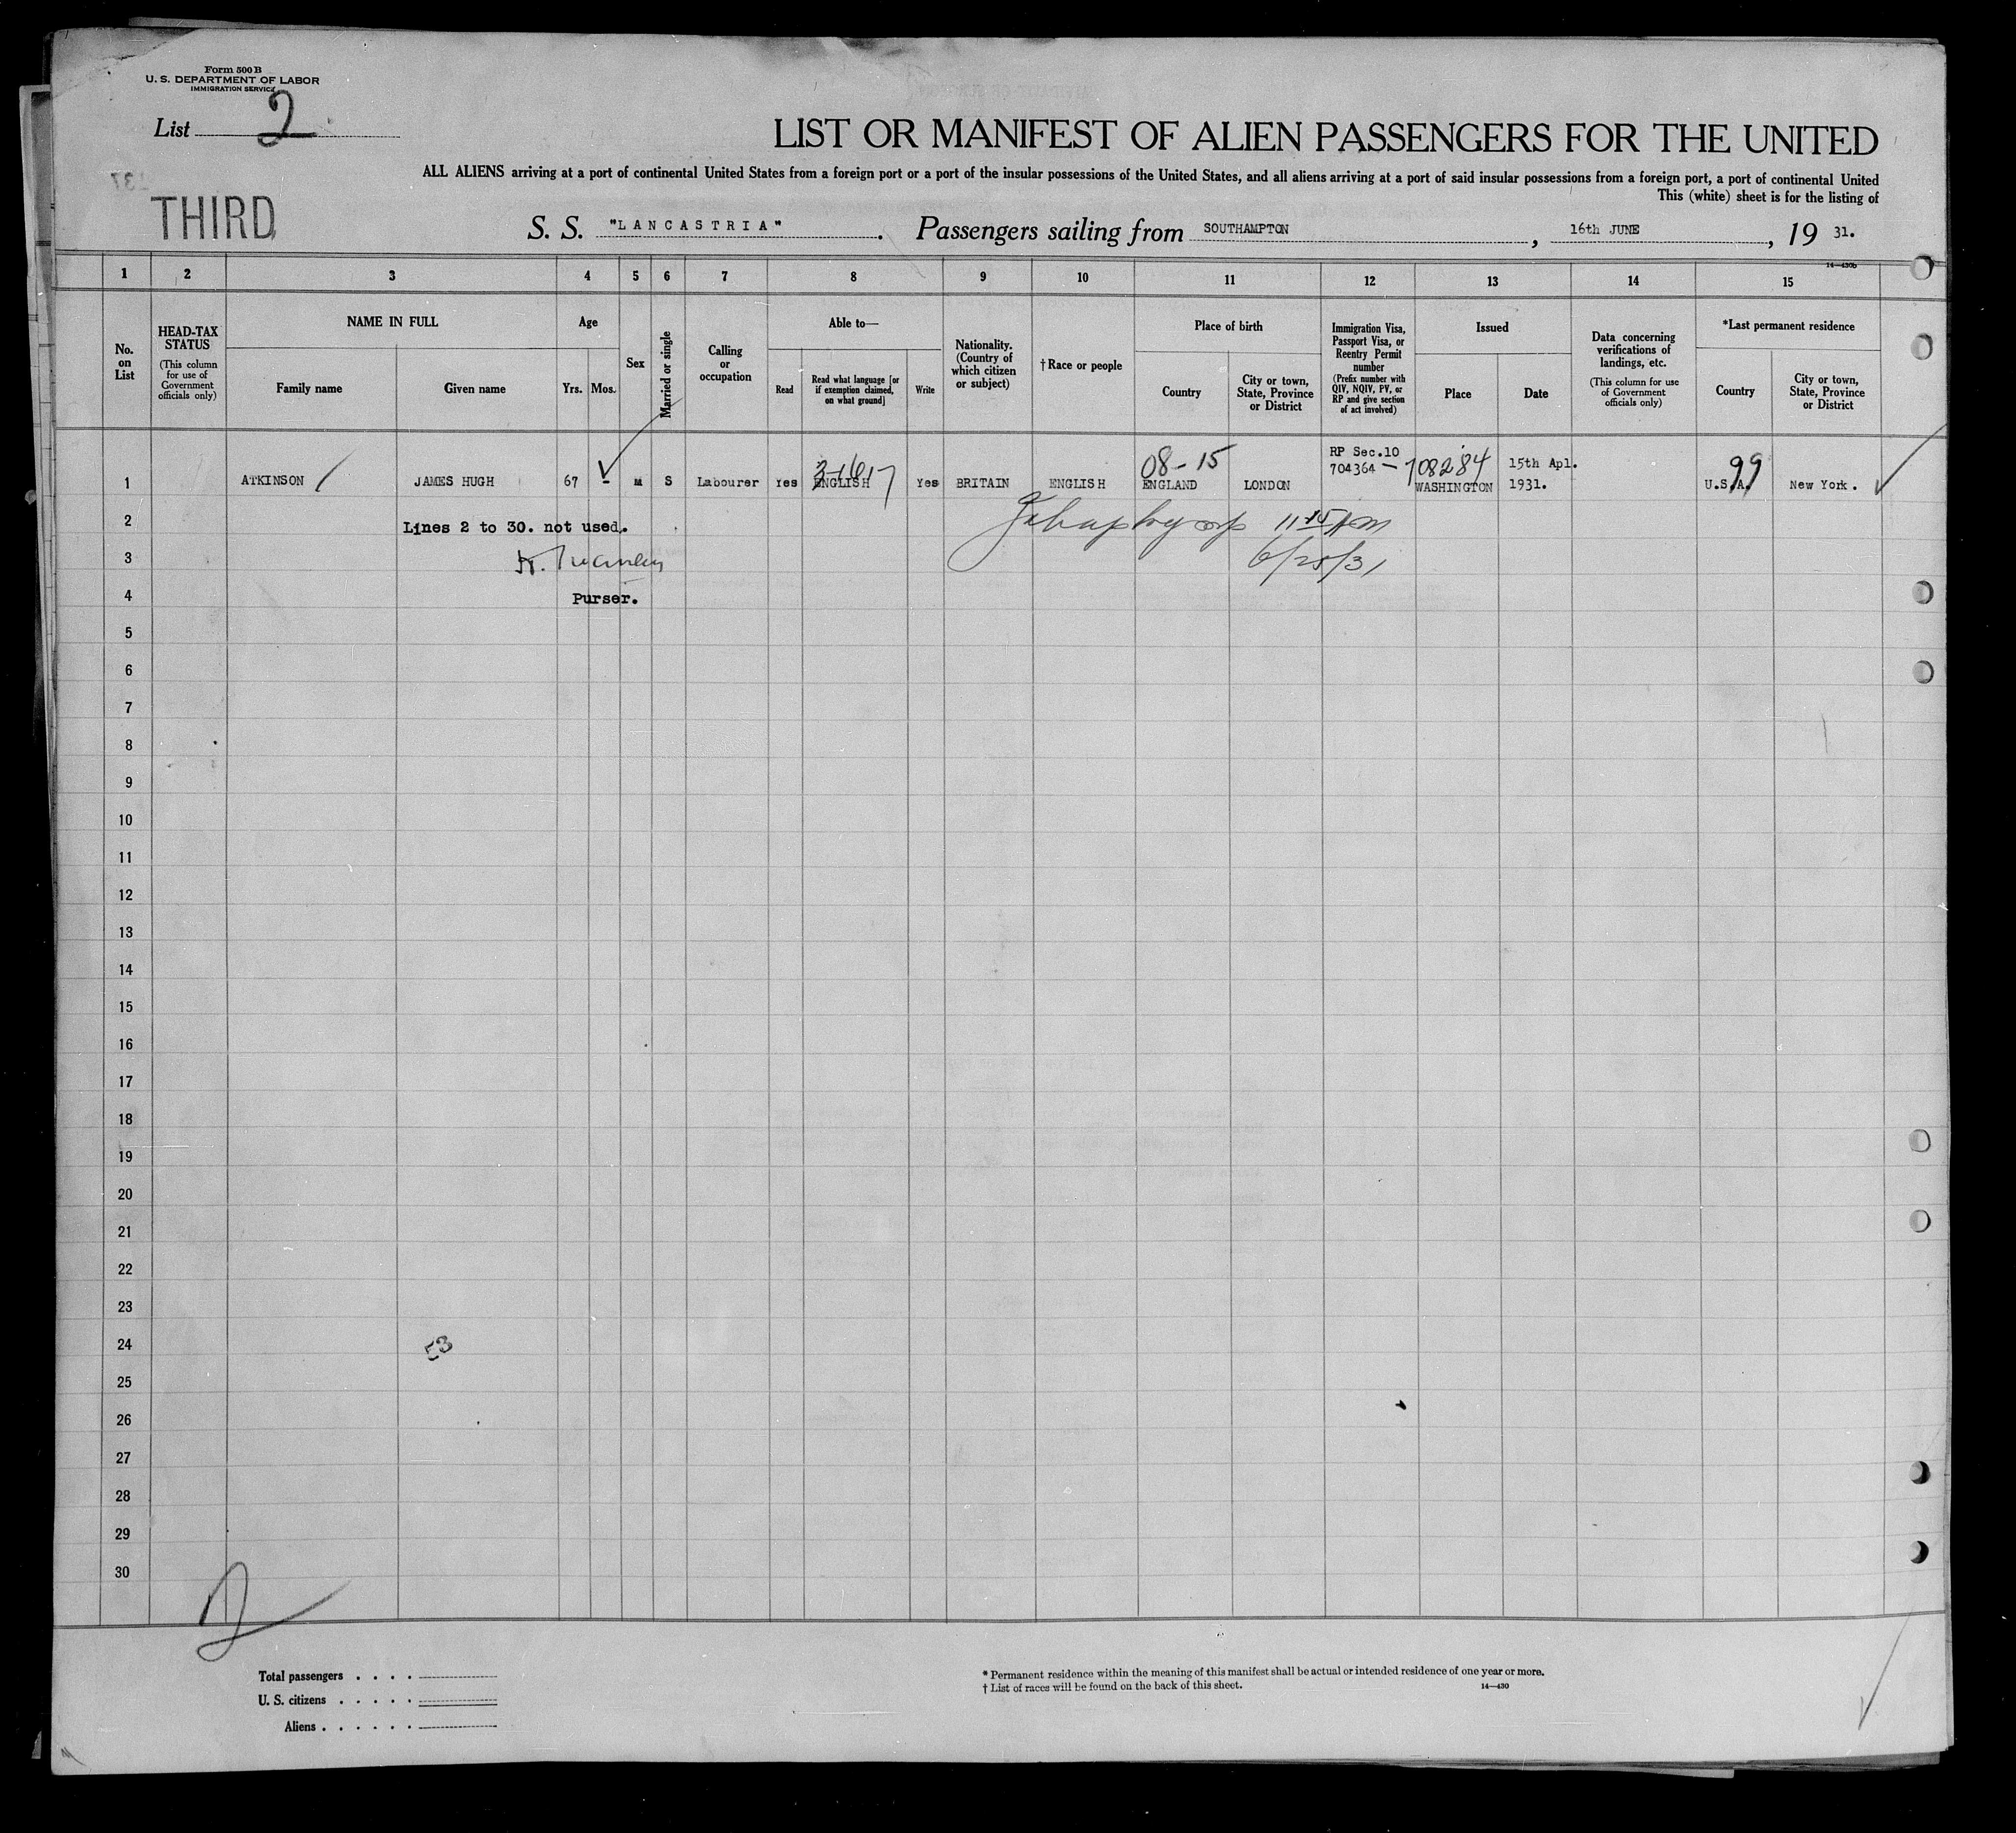 Form 500 B
U. S. DEPARTMENT OF LABOR
IMMIGRATION SERVICE
List 2
LIST OR MANIFEST OF ALIEN PASSENGERS FOR THE UNITED
ALL ALIENS arriving at a port of continental United States from a foreign port or a port of the insular possessions of the United States, and all aliens arriving at a port of said insular possessions from a foreign port, a port of continental United
This (white) sheet is for the listing of
THIRD
S. S. "LANCASTRIA". Passengers sailing from SOUTHAMPTON, 16th JUNE, 19 31.
14—430b
1 2 3 4 5 6 7 8 9 10 11 12 13 14 15
No. on List
HEAD-TAX STATUS
(This column for use of Government officials only)
NAME IN FULL
Family name
Given name
Age
Yrs. Mos.
Sex
Married or single
Calling or occupation
Able to—
Read
Read what language [or if exemption claimed, on what ground]
Write
Nationality. (Country of which citizen or subject)
† Race or people
Place of birth
Country
City or town, State, Province or District
Immigration Visa, Passport Visa, or Reentry Permit number
(Prefix number with QIV, NQIV, PV, or RP and give section of act involved)
Issued
Place
Date
Data concerning verifications of landings, etc.
(This column for use of Government officials only)
*Last permanent residence
Country
City or town, State, Province or District
08-15 RP Sec.10
704364 — 108284 15th Apl. 99
1 ATKINSON JAMES HUGH 67 - M S Labourer Yes ENGLISH Yes BRITAIN ENGLISH ENGLAND LONDON WASHINGTON 1931. U.S.A. New York.
2 Lines 2 to 30. not used. 11 15
3 6/25/31
4 Purser.
5
6
7
8
9
10
11
12
13
14
15
16
17
18
19
20
21
22
23
24 53
25
26
27
28
29
30
2
Total passengers . . . .
U. S. citizens . . . . .
Aliens . . . . . .
* Permanent residence within the meaning of this manifest shall be actual or intended residence of one year or more.
† List of races will be found on the back of this sheet. 14—430